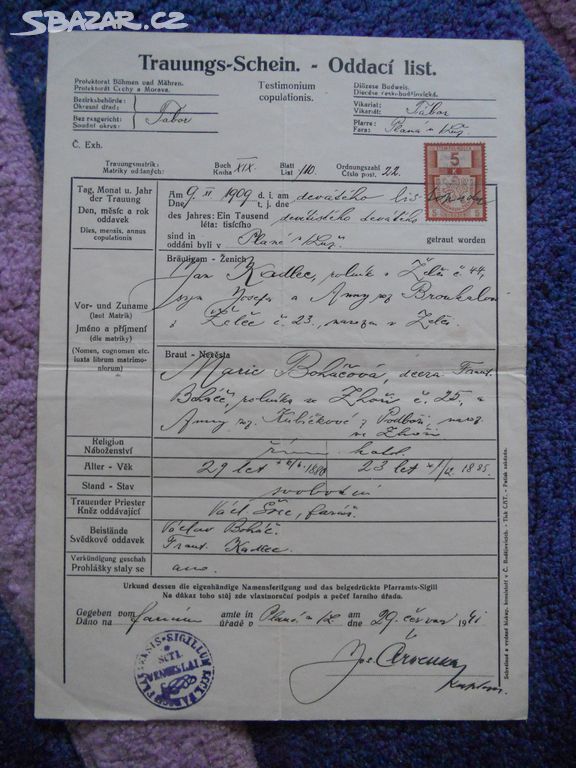 SBAZAR.CZ
Trauungs-Schein. - Oddací list.
Protektorat Böhmen und Mähren.
Protektorát Čechy a Morava.
Bezirksbehörde:
Okresní úřad: Tábor
Bezirksgericht:
Soudní okres: Tábor
Testimonium
copulationis.
Diözese Budweis.
Diecése česko-budějovická.
Vikariat:
Vikariát: Tábor
Pfarre:
Fara: Planá n/Luž.
Č. Exh.
5
K
5 5
Trauungsmatrik: Buch Blatt Ordnungszahl
Matriky oddaných: Kniha XIX. List 110. Číslo post. 22.
Tag, Monat u. Jahr
der Trauung
Den, měsíc a rok
oddavek
Dies, mensis, annus
copulationis
Am d. i. am
Dne 9. XI 1909 t. j. dne devátého listopadu
des Jahres: Ein Tausend
léta: tisícího devítistého devátého
sind in getraut worden
oddáni byli v Plané n/Luž.
Vor- und Zuname
(laut Matrik)
Jméno a příjmení
(dle matriky)
(Nomen, cognomen etc.
iuxta librum matrimo-
niorum)
Bräutigam - Ženich
Jan Kadlec, rolník v Želči č 44,
syn Josefa a Anny roz Broukalové
z Želče č. 23, narozen v Želči.
Braut - Nevěsta
Marie Boháčová, dcera Frant.
Boháče, rolníka ve Zhoři č. 25, a
Anny roz. Kubíčkové z Podboří, naroz.
ve Zhoři
Religion
Náboženství
řím. katol.
Alter - Věk
29 let 1880 23 let 1885.
Stand - Stav
svobodní
Trauender Priester
Kněz oddávající
Václ. farář.
Beistände
Svědkové oddavek
Václav Boháč.
Frant. Kadlec.
Verkündigung geschah
Prohlášky staly se
ano.
Urkund dessen die eigenhändige Namensfertigung und das beigedrückte Pfarramts-Sigill
Na důkaz toho stůj zde vlastnoruční podpis a pečeť farního úřadu.
Gegeben vom amte in am
Dáno na farním úřadě v Plané n/L. dne 29. června 1941
Jos. Červenka
kaplan.
SIGILLUM
SCTI.
VENCESLAI